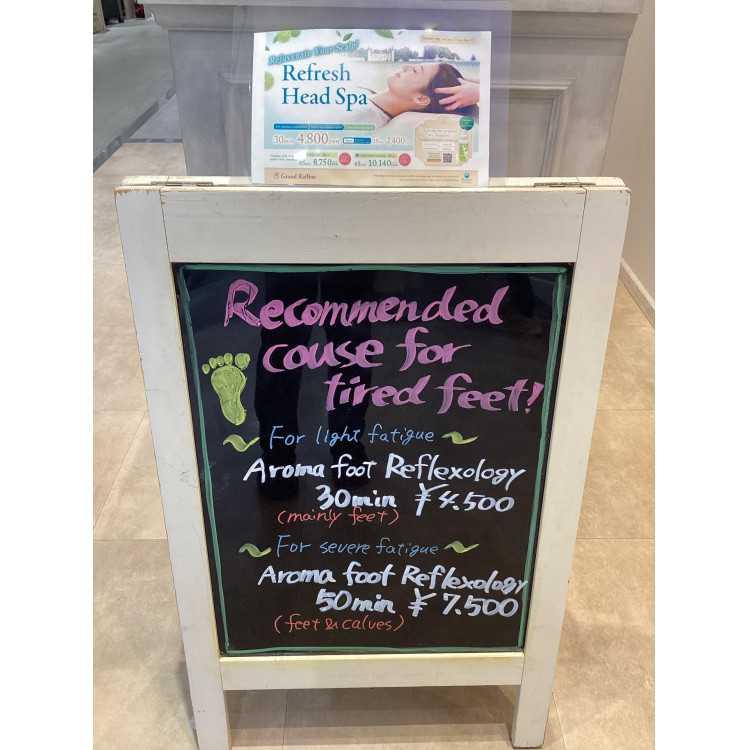 Rejuvenate Your Scalp!
Refresh
Head Spa
30min 4,800yen
15min 2,400
65min 8,750yen
65min 10,140yen
Grand Raffine
Recommended
couse for
tired feet!
For light fatigue
Aroma foot Reflexology
30min ¥4.500
(mainly feet)
For severe fatigue
Aroma foot Reflexology
50min ¥7.500
(feet & calves)